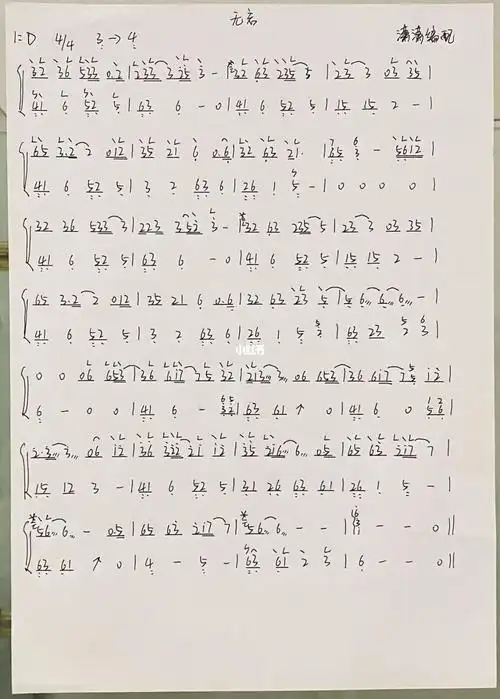 无名
1=D 4/4 3→4 潇潇编配
32 36 533 0.2 | 233 3 25 3 - | 32 63 235 5 | 23 3 03 35 |
41 6 52 5 | 63 6 - 0 | 41 6 52 5 | 15 15 2 - |
65 3.2 2 012 | 35 21 6 0.6 | 32 63 21. | 65 3 - 5612 |
41 6 52 5 | 3 2 63 6 | 26 1 5 - | 0 0 0 0 |
32 36 533 3 | 223 3 52 3 - | 32 63 235 5 | 23 3 03 35 |
41 6 52 5 | 63 6 - 0 | 41 6 52 5 | 15 15 2 - |
65 3.2 2 012 | 35 21 6 0.6 | 32 63 23 5 | 5 6... 6... 6... - |
41 6 52 5 | 3 2 63 6 | 26 1 5 | 63 23
小红书
0 0 06 653 | 36 617 75 32 | 213... 3... 06 653 | 36 617 7 12 |
6 - 0 0 | 41 6 - | 63 61 ↑ 0 | 41 6 0
2.3... 3... 06 12 | 36 332 21 12 | 35 216... 6... 05 | 65 63 217 7 |
15 12 3 - | 41 6 52 5 | 31 26 63 61 | 26 1 5 - |
56... 6... - 05 | 65 63 217 7 | 56... 6... - - | - - 0 ||
63 61 ↑ 0 | 4 - 5 - | 63 61 2 3 | 6 - - 0 ||